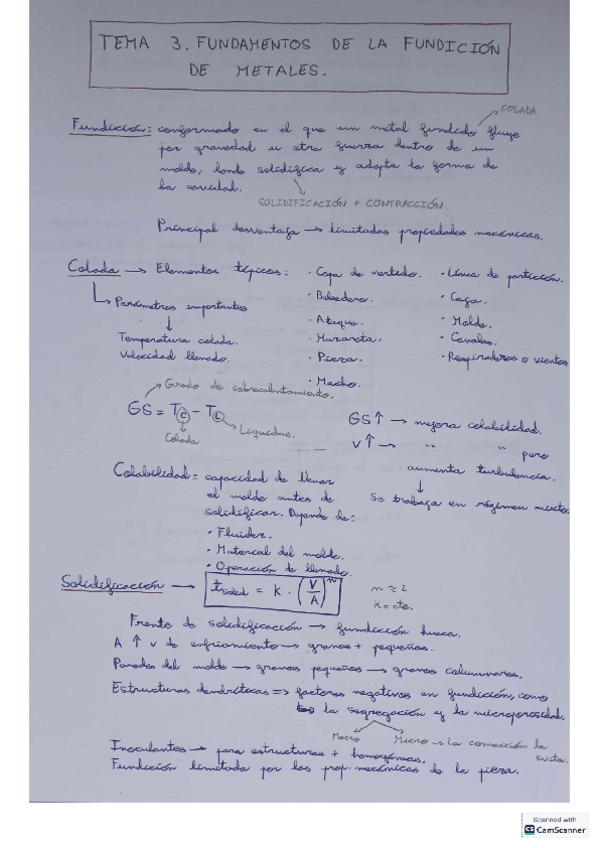 TEMA 3. FUNDAMENTOS DE LA FUNDICIÓN
DE METALES.
COLADA
Fundición: conformado en el que un metal fundido fluye
por gravedad u otra fuerza dentro de un
molde, donde solidifica y adopta la forma de
la cavidad.
SOLIDIFICACIÓN + CONTRACCIÓN.
Principal desventaja → limitadas propiedades mecánicas.
Colada → Elementos típicos: · Copa de vertido. · Línea de partición.
· Bebedero. · Caja.
Parámetros importantes
· Ataque. · Molde.
Temperatura colada. · Mazarota. · Canales.
Velocidad llenado. · Pieza. · Respiraderos o vientos
· Macho.
Grado de sobrecalentamiento.
GS = Tc - TL
Liquidus.
Colada
GS↑ → mejora colabilidad.
V↑ → " " pero
aumenta turbulencia.
Se trabaja en régimen mixto.
Colabilidad = capacidad de llenar
el molde antes de
solidificar. Depende de:
· Fluidez.
· Material del molde.
· Operación de llenado.
Solidificación → tsolid = K · (V/A)^n n ≈ 2
K = cte.
Frente de solidificación → fundición hueca.
A ↑ v de enfriamiento → granos + pequeños.
Paredes del molde → granos pequeños → granos columnares.
Estructuras dendríticas => factores negativos en fundición, como
la segregación y la microporosidad.
Macro Micro → la convección la
evita.
Inoculantes → para estructuras + homogéneas.
Fundición limitada por las prop. mecánicas de la pieza.
Scanned with
CS CamScanner